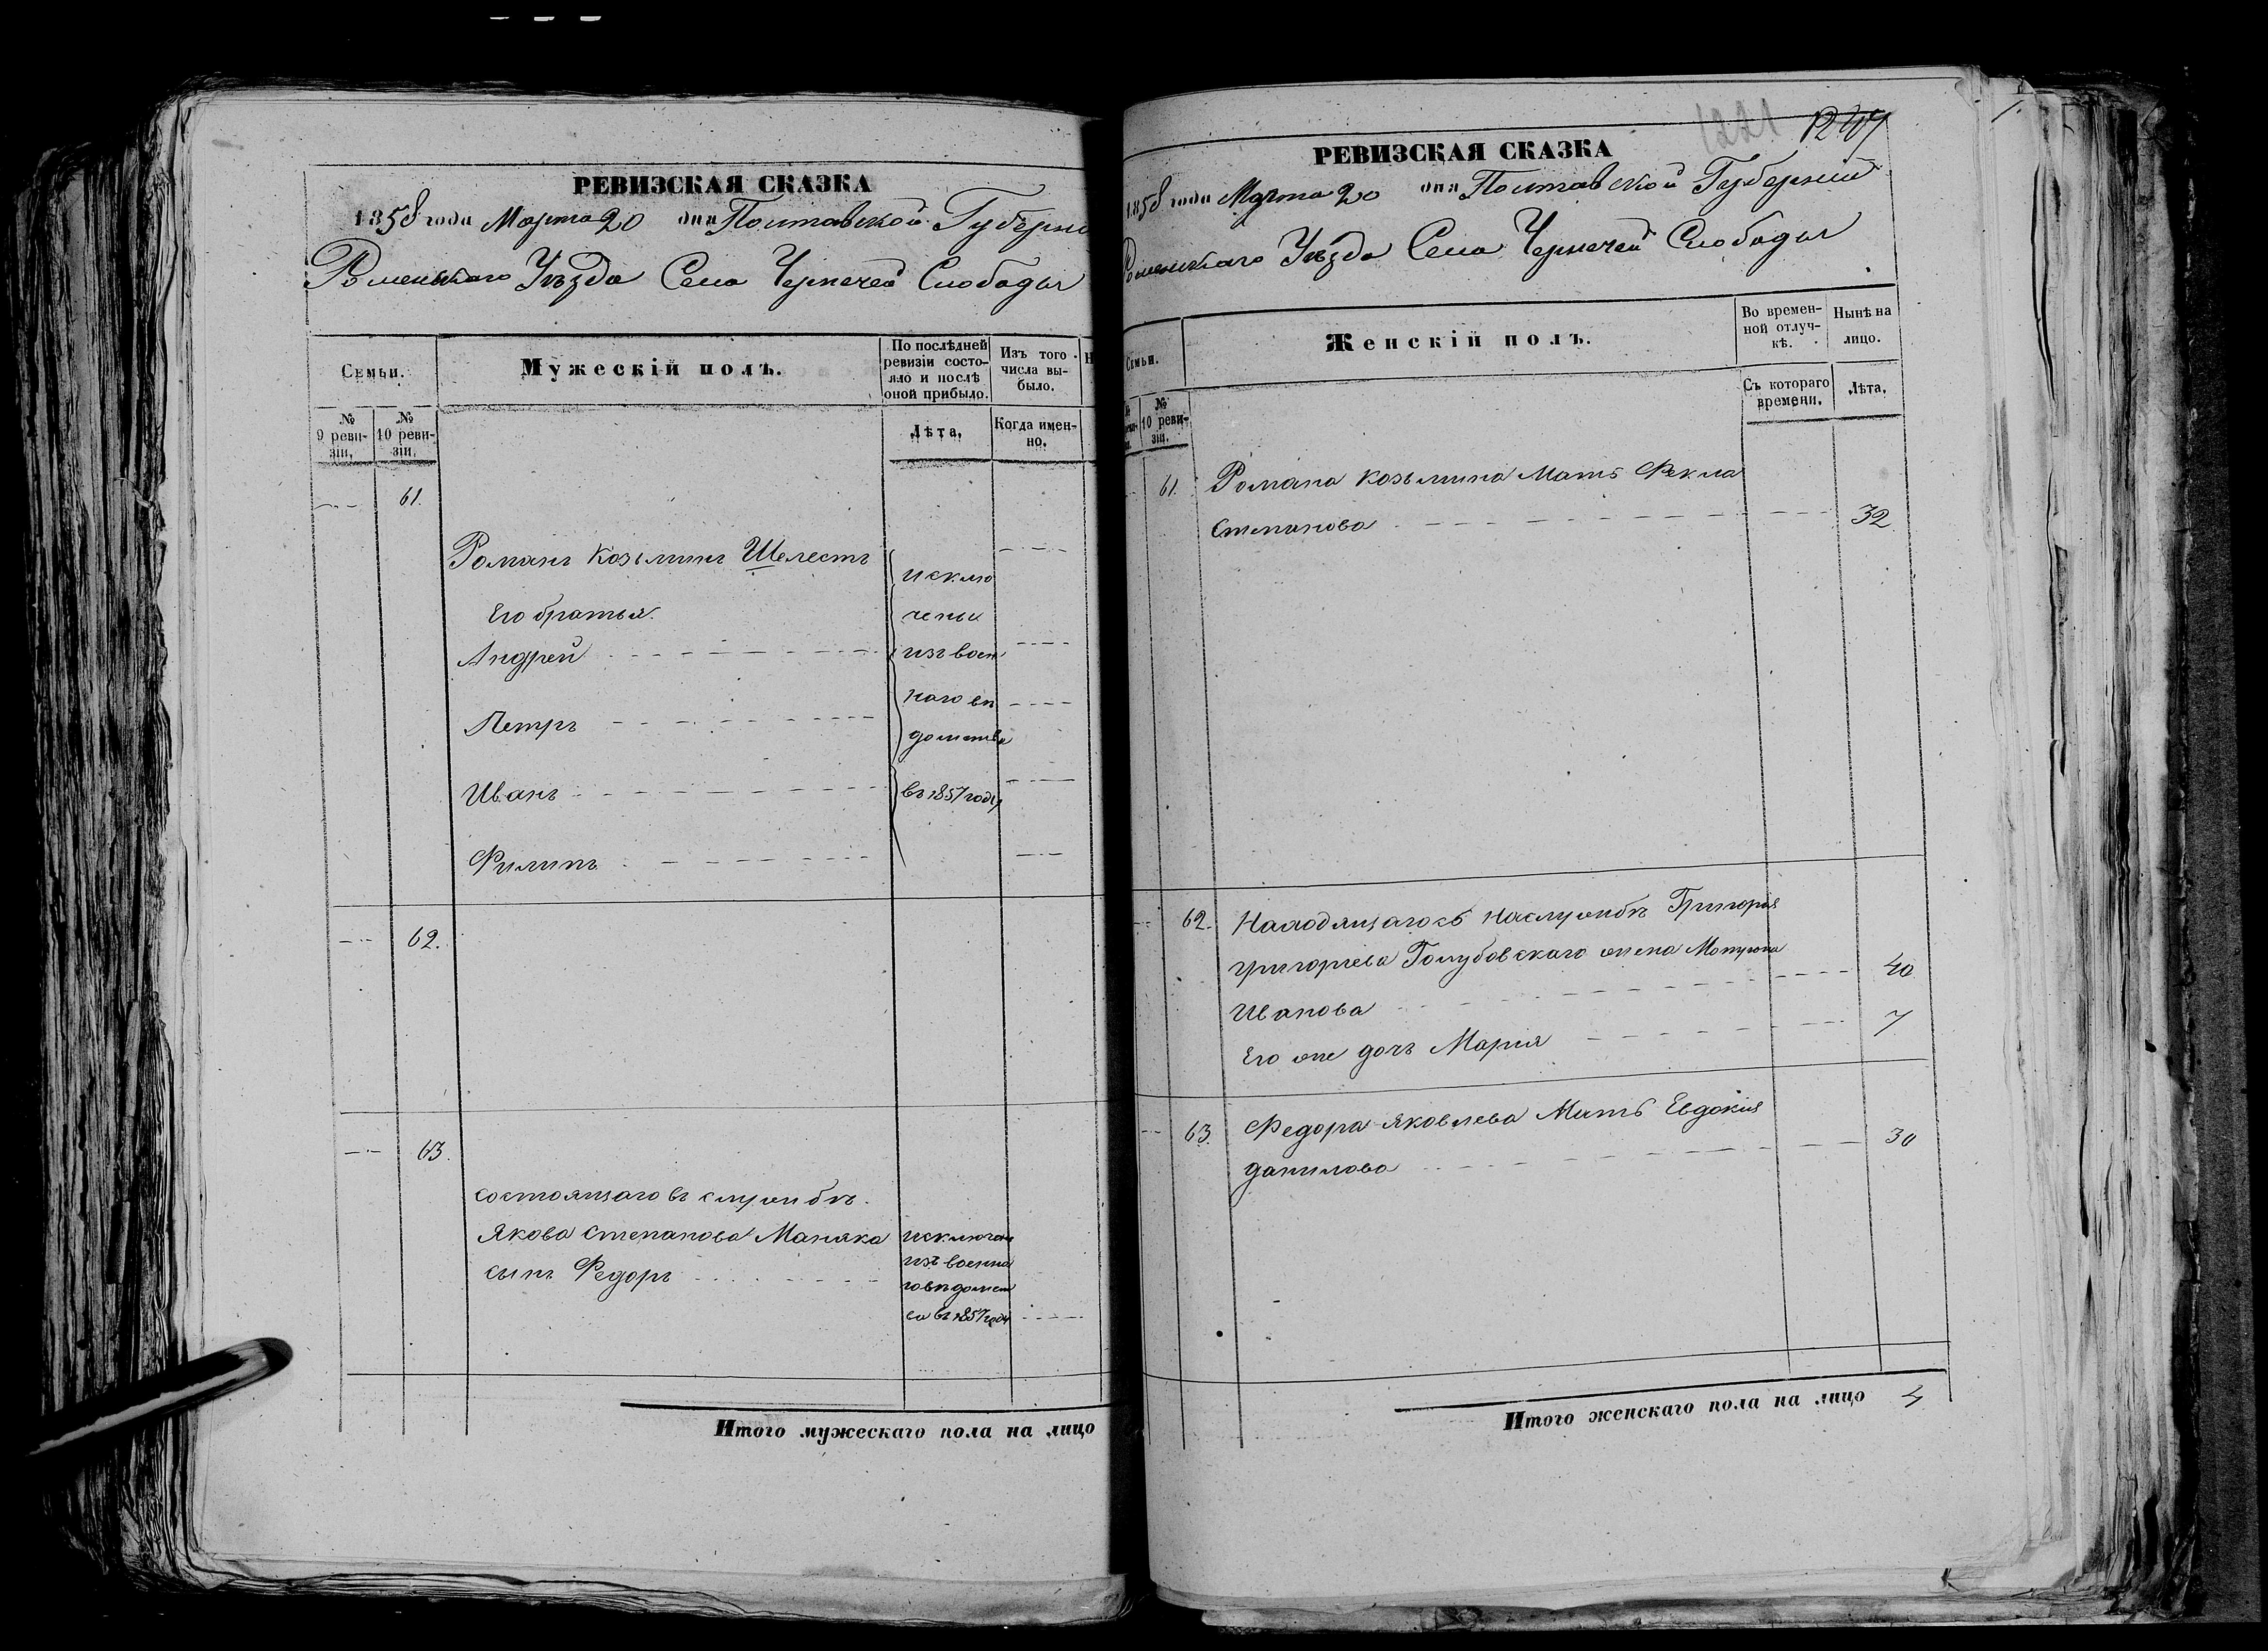 РЕВИЗСКАЯ СКАЗКА
1858 года Марта 20 дня Полтавской Губерн
Роменскаго Уѣзда Села Чернечей Слободы
Семьи.
Мужескій полъ.
По послѣдней ревизіи состояло и послѣ оной прибыло.
Изъ того числа выбыло.
№ 9 ревизіи.
№ 10 ревизіи.
Лѣта.
Когда именно.
61.
Романъ Козьминъ Шелестъ
Его братья.
Андрей
Петръ
Иванъ
Филипъ
исклю
чены
изъ воен
наго вѣ
домства
въ 1857 году
62.
63.
состоящаго въ службѣ
Якова Степанова Маняка
сынъ Федоръ
исключен
изъ военна
го вѣдомст
ва въ 1857 году
Итого мужескаго пола на лицо
1221
РЕВИЗСКАЯ СКАЗКА
1858 года Марта 20 дня Полтавской Губерніи
Роменскаго Уѣзда Села Чернечей Слободы
Семьи.
Женскій полъ.
Во временной отлучкѣ.
Нынѣ на лицо.
№ 10 ревизіи.
Съ котораго времени.
Лѣта.
61. Романа Козьмина Мать Фекла
Степанова 32
62. Находящагось на службѣ Григорія
Григорьева Голубовскаго жена Мотрона
Иванова 40
Его же дочь Мария 7
63. Федора Яковлева Мать Евдокия
Данилова 30
Итого женскаго пола на лицо 4